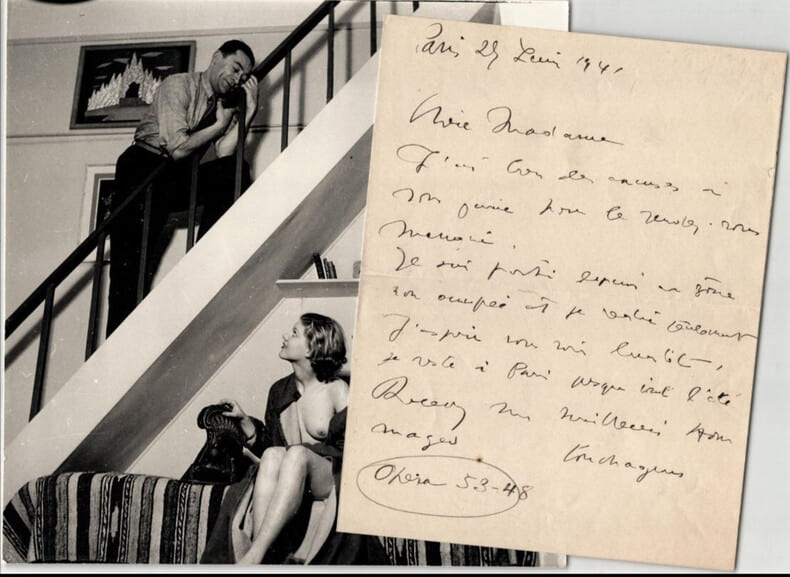 Paris 25 Juin 1941
Chère Madame
J'ai bien des excuses à
vous pour le rendez-vous
manqué.
Je suis parti depuis en zône
non occupée et je rentre seulement
J'espère vous voir bientôt,
je reste à Paris jusque tout l'été
Recevez mes meilleurs hom
mages
Opéra 53-48